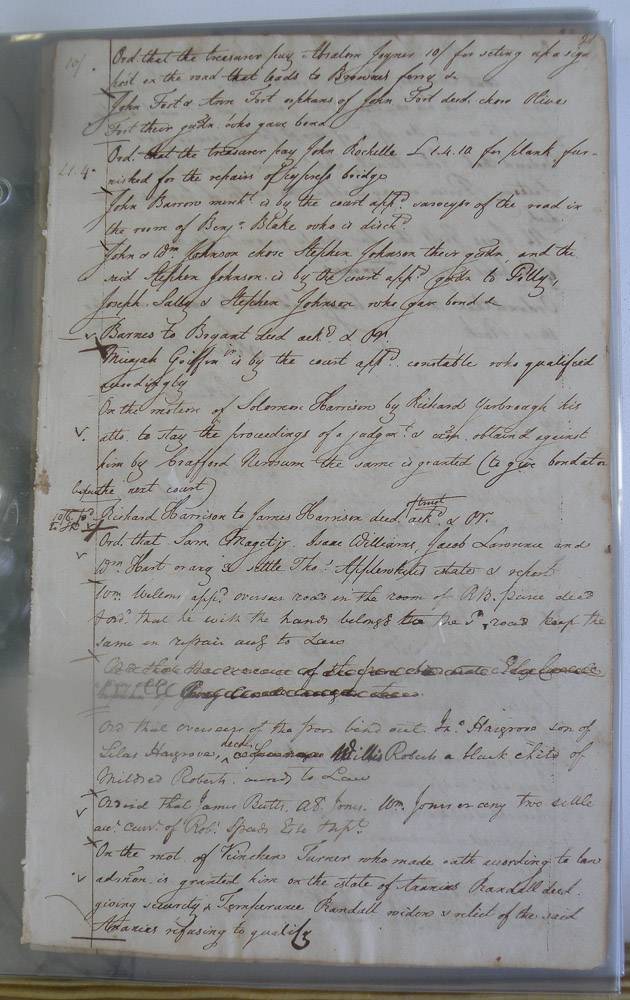 10/. Ord. that the treasurer pay Absalom Joyner 10/ for seting up a sign
post on the road that leads to Browns ferry &
John Fort & Ann Fort orphans of John Fort deed. chose Olive
Fort their gudn. who gave bond
£1.4. Ord. that the treasurer pay John Rochelle £1.4.10 for plank fur-
nished for the repairs of Cypress bridge
John Barrow is by the court appd. surveyor of the road in
the room of Benjn. Blake who is dischd.
John & Wm Johnson chose Stephen Johnson their gudn. and the
said Stephen Johnson is by the court appd. gudn to Polly,
Joseph Sally & Stephen Johnson who gave bond &
Barnes to Bryant deed ackd. & Or.
Micajah Griffin jr. is by the court appd. constable who qualified
accordingly
On the motion of Solomon Harrison by Richard Yarbrough his
atto. to stay the proceedings of a judgmt. & obtaind against
him by Crafford Newsum the same is granted (to give bond at or
before the next court)
Richard Harrison to James Harrison deed of trust ackd. & Or.
Ord. that Sam Magetjr. Isaac Williams, Jacob Lawrence and
Wm. Hart or any 2 settle Tho. estate & report
Wm. appd. overseer road in the room of deed
& ord. that he with the hands belongg to the sd. road keep the
same in repair accg to Law
of the poor
Ord that overseers of the poor bind out Jno. Hargrove son of
Silas Hargrove, decd. Willis Roberts a black child of
Mildred Roberts accordg to Law
Ordered that James Butts, Wm. Jones or any two settle
Robt. Speeds Este &
On the mot. of Kinchen Turner who made oath according to law
admon. is granted him on the estate of Ananias Randall deed.
giving security & Temperance Randall widow & relict of the said
Ananias refusing to qualify